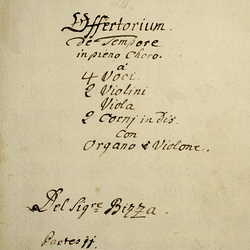 Offertorium.
de Tempore
in pieno Choro.
à
4 Voci
2 Violini
Viola
2 Corni in Dis.
con
Organo è Violone.
Del Sigre Bizza.
Partes 11.